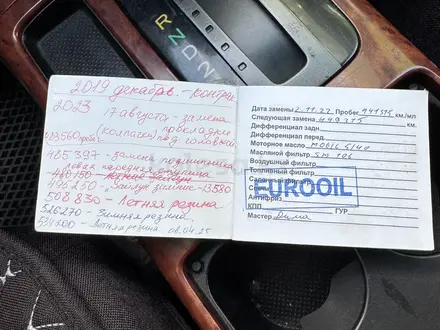 R
N
D
2
2019 декабрь - контрак
2023 17 августа - замена
(колпака) прокладки
463560 пробег под головкой
485397 - замена подшипника
левая передняя
480150
496250 - Запчаст зимние - 13580
508830 - Летняя резина
526270 - Зимняя резина
534700 - Летняя резина 08.04.25
Дата замены 2.11.22 Пробег 441315 км/мл
Следующая замена 449315 км/мл
Дифференциал задн.
Дифференциал
Моторное масло MOBIL 5/40
Масляной фильтр SM 106
Воздушный фильтр
Топливный фильтр
Салонный фильтр
EUROOIL
Антифриз
КПП ГУР
Мастер Дима